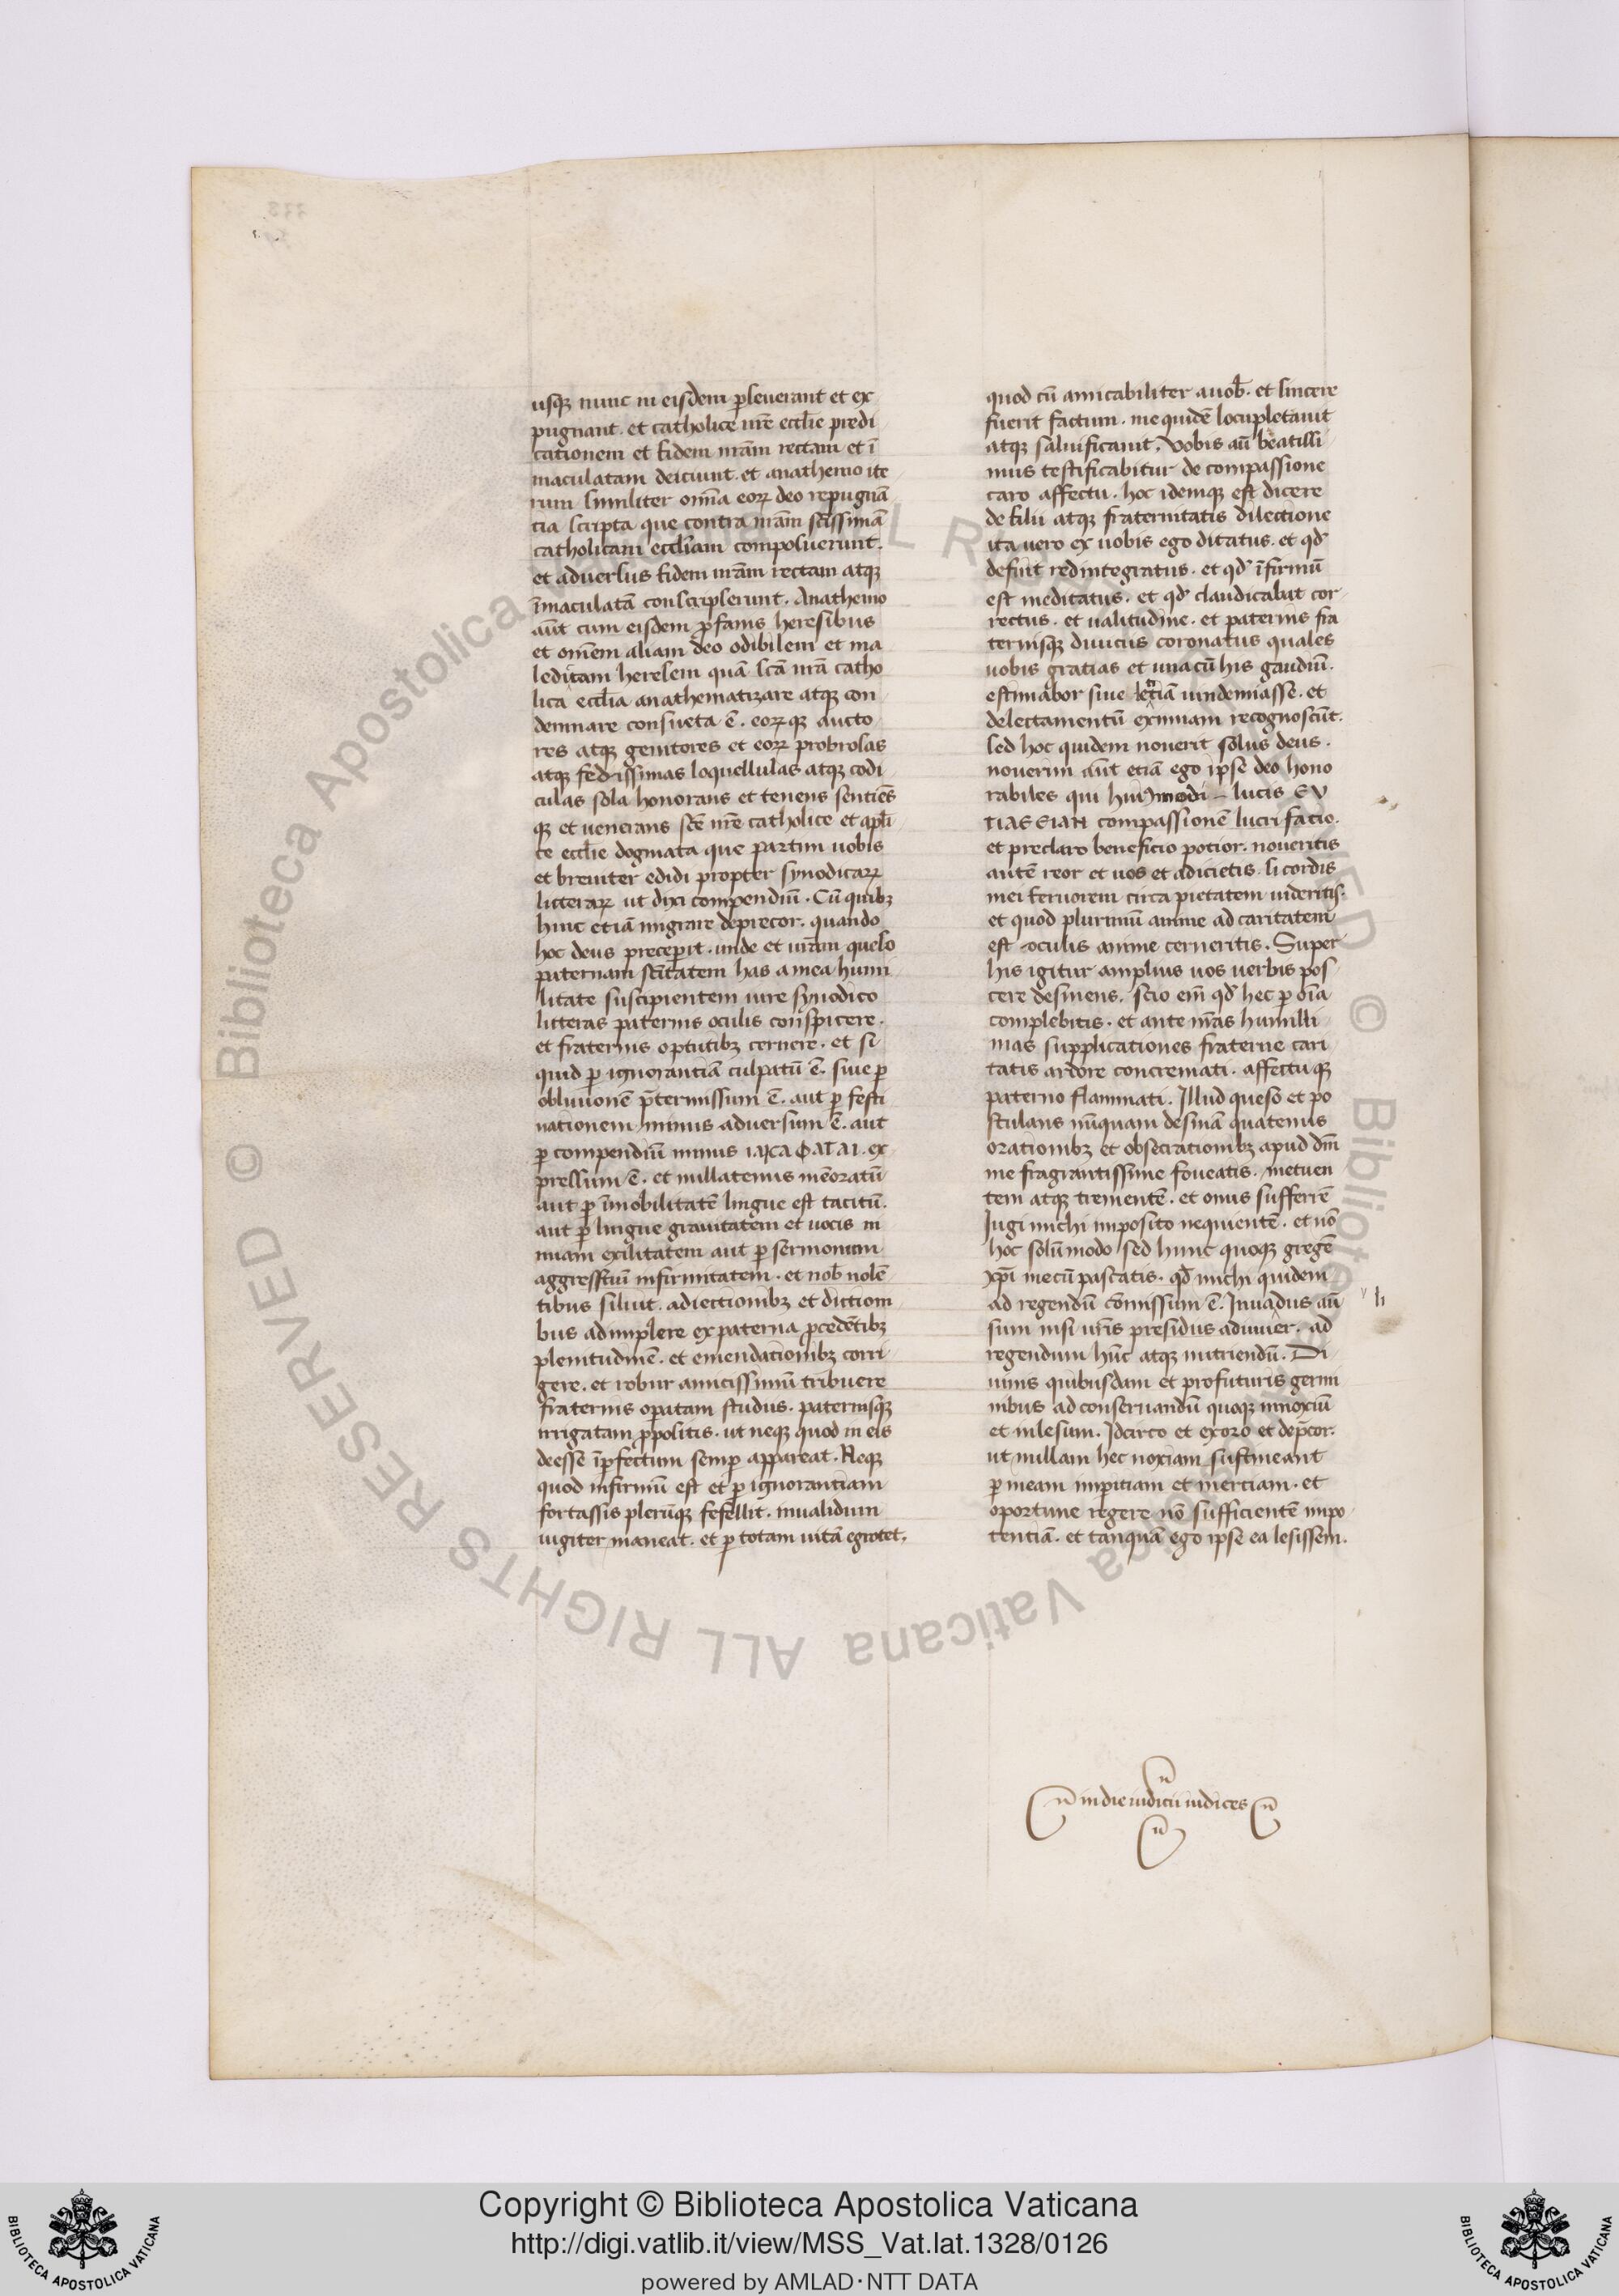 usqꝫ nunc in eisdem ꝑseuerant et ex
pugnant. et catholice nr̄e eccl̄ie predi
cationem et fidem nr̄am rectam et ī
maculatam deiciunt. et anathemo ite
rum similiter om̄ia eoꝝ deo repugnā
cia scripta que contra nr̄am sc̄issimā
catholicam eccl̄iam composuerunt.
et aduersus fidem nr̄am rectam atqꝫ
īmaculatā conscripserunt. Anathemo
aūt cum eisdem ꝓfanis heresibus
et om̄em aliam deo odibilem et ma
ledictam heresem quā sc̄a nr̄a catho
lica eccl̄ia anathematizare atqꝫ con
demnare consueta ē. eoꝝqꝫ aucto
res atqꝫ genitores et eoꝝ probrosas
atqꝫ fedissimas loquellulas atqꝫ codi
culas sola honorans et tenens sentiēs
qꝫ et uenerans sc̄e nr̄e catholice et apl̄i
ce eccl̄ie dogmata que partim uobis
et breuiter edidi propter synodicaꝝ
litteraꝝ ut dixi compendiū. Cū quibꝫ
hinc etiā migrare deprecor. quando
hoc deus preceperit. unde et ur̄am queso
paternam sc̄itatem has a mea humi
litate suscipientem iure synodico
litteras paternis oculis conspicere.
et fraternis optutibꝫ cernere. et si
quid ꝑ ignorantiā culpatū ē. siue ꝑ
obliuionē p̄termissum ē. aut ꝑ festi
nationem minus aduersum ē. aut
ꝑ compendiū minus ex
pressum ē. et nullatenus mēoratū
aut ꝑ īmobilitatē lingue est tacitū.
aut ꝑ lingue grauitatem et uocis in
nuam exilitatem aut ꝑ sermonum
aggressuū infirmitatem. et nob̄ nolē
tibus siluit. adiectionibꝫ et dictioni
bus adimplere ex paterna ꝓcedētibꝫ
plenitudinē. et emendacionibꝫ corri
gere. et robur amicissimū tribuere
fraternis oꝑatam studiis. paternisqꝫ
irrigatam ꝓpositis. ut neqꝫ quod in eis
deesse īꝑfectum semꝑ appareat. Neqꝫ
quod infirmū est et ꝑ ignorantiam
fortassis plerūqꝫ fefellit. inualidum
iugiter maneat. et ꝑ totam uitā egrotet.
quod cū amicabiliter a uob̄. et sincere
fuerit factum. me quidē locupletauit
atqꝫ saluificauit. Vobis aū beatissi
mus testificabitur de compassione
caro affectu. hoc idemqꝫ est dicere
de filii atqꝫ fraternitatis dilectione
ita uero ex uobis ego ditatus. et qd̓
defuit redintegratus. et qd̓ īfirmū
est meditatus. et qd̓ claudicabat cor
rectus. et ualitudine. et paternis fra
ternisqꝫ diuiciis coronatus quales
uobis gratias et una cū his gaudiū.
estimabor siue uindemiasse. et
delectamentū eximiam recognoscūt.
sed hoc quidem nouerit solus deus.
nouerim aūt etiā ego ipse deo hono
rabiles qui huiꝰmodi lucis ЄV
TIASSIAN compassionē lucri facio.
et preclaro beneficio potior. noueritis
autē reor et uos et adicietis. si cordis
mei feruorem circa pietatem uideritis.
et quod plurimū anime ad caritatem
est oculis anime cerneritis. Super
his igitur amplius uos uerbis pos
cere desinens. scio em̄ qd̓ hec ꝑ oīa
complebitis. et ante nr̄as humilli
mas supplicationes fraterne cari
tatis ardore concremati. affectuqꝫ
paterno flammati. Illud queso et po
stulans nūquam desinā quatenus
orationibꝫ et obsecrationibꝫ apud dn̄m
me fragrantissime foueatis. metuen
tem atqꝫ trementē. et onus sufferrē
Iugi michi imposito nequientē. et nō
hoc solūmodo sed hunc quoqꝫ gregē
xp̄i mecū pascatis. qd̓ michi quidem
ad regendū cōmissum ē. Inuadus aū
sum nisi ur̄is presidiis adiuuer. ad
regendum hūc atqꝫ nutriendū. Di
uinis quibusdam et profuturis germi
nibus ad conseruandū quoqꝫ innoxiū
et inlesum. Idcirco et exoro et dep̄cor.
ut nullam hec noxiam sustineant
ꝑ meam imꝑitiam et inerciam. et
oportune regere nō sufficientē impo
tentiā. et tanquā ego ipse ea lesissem.
in die iudicii iudices
Copyright © Biblioteca Apostolica Vaticana
http://digi.vatlib.it/view/MSS_Vat.lat.1328/0126
powered by AMLAD·NTT DATA
BIBLIOTECA APOSTOLICA VATICANA
BIBLIOTECA APOSTOLICA VATICANA